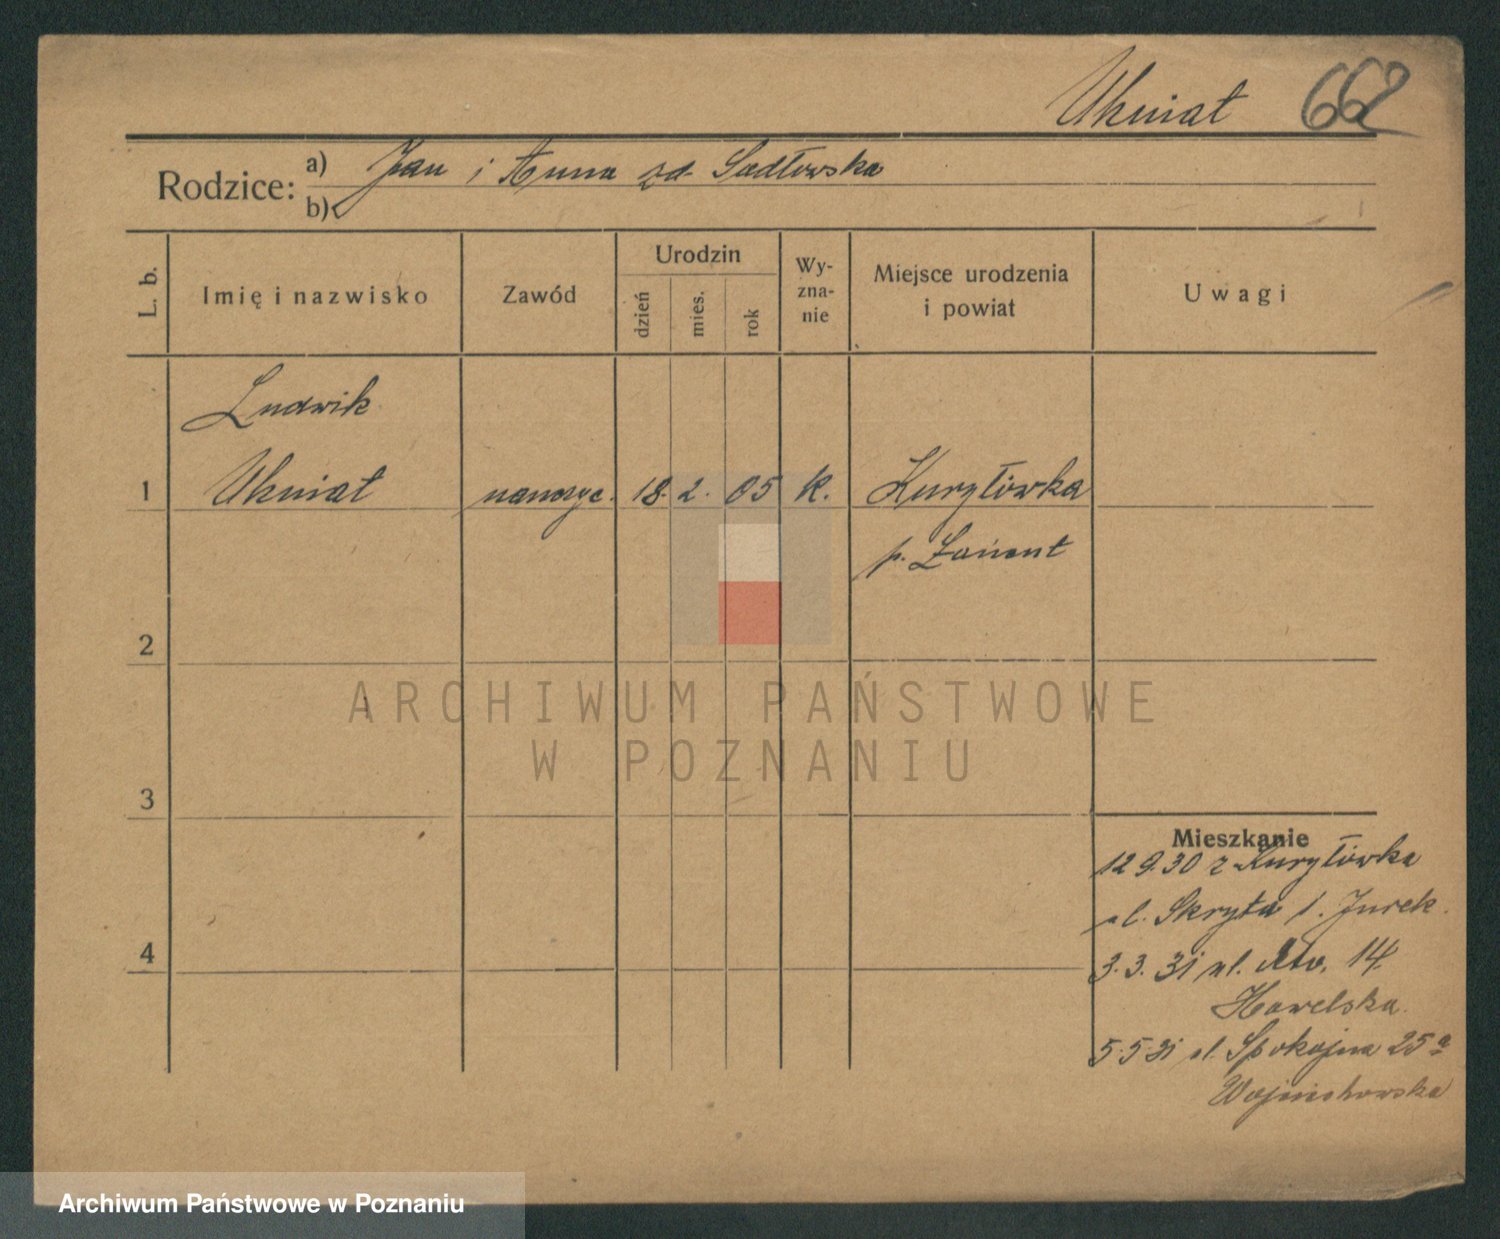 Ukniat 662
Rodzice: a) Jan i Anna zd. Sadłowska
b)
L. b.
Imię i nazwisko
Zawód
Urodzin
dzień
mies.
rok
Wy-
zna-
nie
Miejsce urodzenia
i powiat
Uwagi
Ludwik
1 Ukniat nauczyc. 18. 2. 05 k. Kuryłówka
p. Łańcut
2
ARCHIWUM PAŃSTWOWE
W POZNANIU
3
Mieszkanie
12 9.30 z Kuryłówka
ul. Skryta 1. Jurek.
4
3.3.31 ul. 14
Hawelska
5.5.31 ul. Spokojna 25a
Wojciechowska
Archiwum Państwowe w Poznaniu